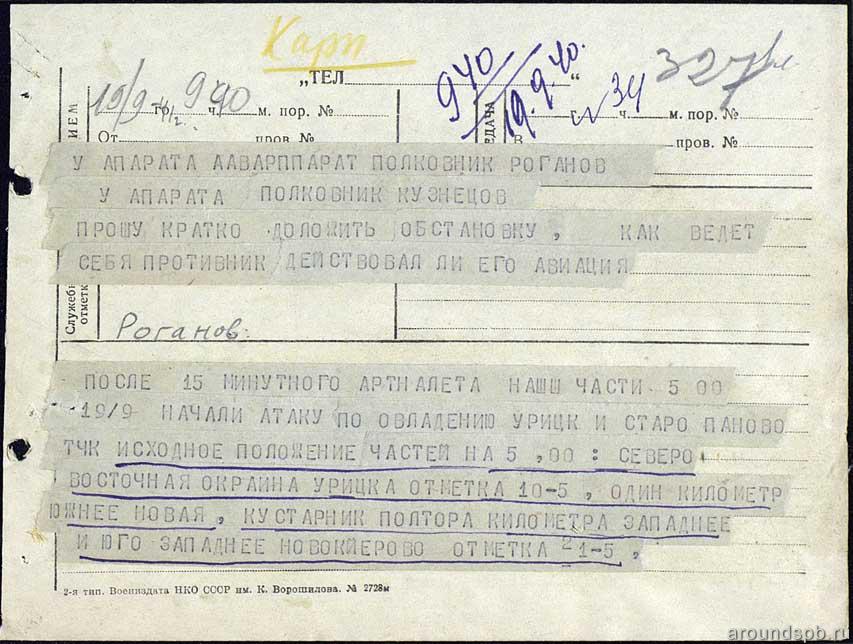 Карп
„ТЕЛ “
19/9 940 ч. м. пор. №
940 19.9.40.
34 ч. м. пор. №
327
От пров. №
В пров. №
У АПАРАТА ААВАРППАРАТ ПОЛКОВНИК РОГАНОВ
У АПАРАТА ПОЛКОВНИК КУЗНЕЦОВ
ПРОШУ КРАТКО ДОЛОЖИТЬ ОБСТАНОВКУ, КАК ВЕДЕТ
СЕБЯ ПРОТИВНИК ДЕЙСТВОВАЛ ЛИ ЕГО АВИАЦИЯ
Служебн
отметк
Роганов.
ПОСЛЕ 15 МИНУТНОГО АРТНАЛЕТА НАШШ ЧАСТИ 5 00
19/9 НАЧАЛИ АТАКУ ПО ОВЛАДЕНИЮ УРИЦК И СТАРО ПАНОВО
ТЧК ИСХОДНОЕ ПОЛОЖЕНИЕ ЧАСТЕЙ НА 5 ,00 : СЕВЕРО
ВОСТОЧНАЯ ОКРАИНА УРИЦКА ОТМЕТКА 10-5 , ОДИН КИЛОМЕТР
ЮЖНЕЕ НОВАЯ , КУСТАРНИК ПОЛТОРА КИЛОМЕТРА ЗАПАДНЕЕ
И ЮГО ЗАПАДНЕЕ НОВОКЙЕРОВО ОТМЕТКА 21-5 ,
2-я тип. Воениздата НКО СССР им. К. Ворошилова. № 2728м
aroundspb.ru